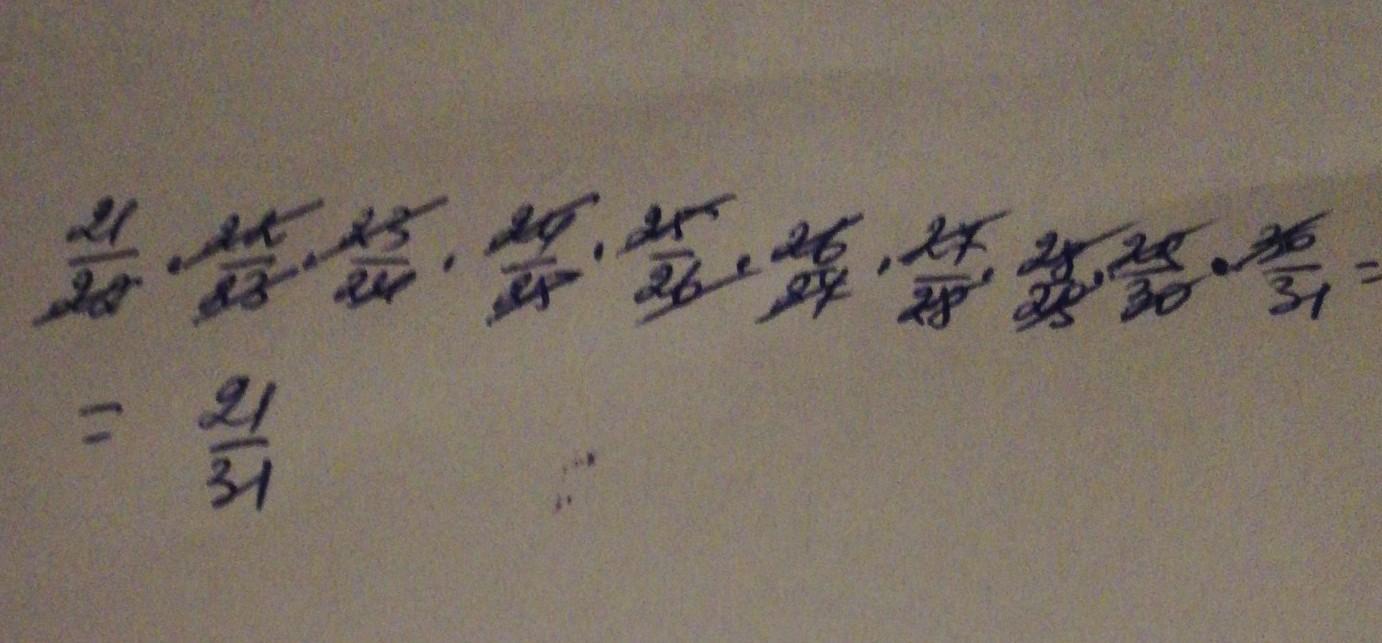 21/22 · 22/23 · 23/24 · 24/25 · 25/26 · 26/27 · 27/28 · 28/29 · 29/30 · 30/31 =
= 21/31